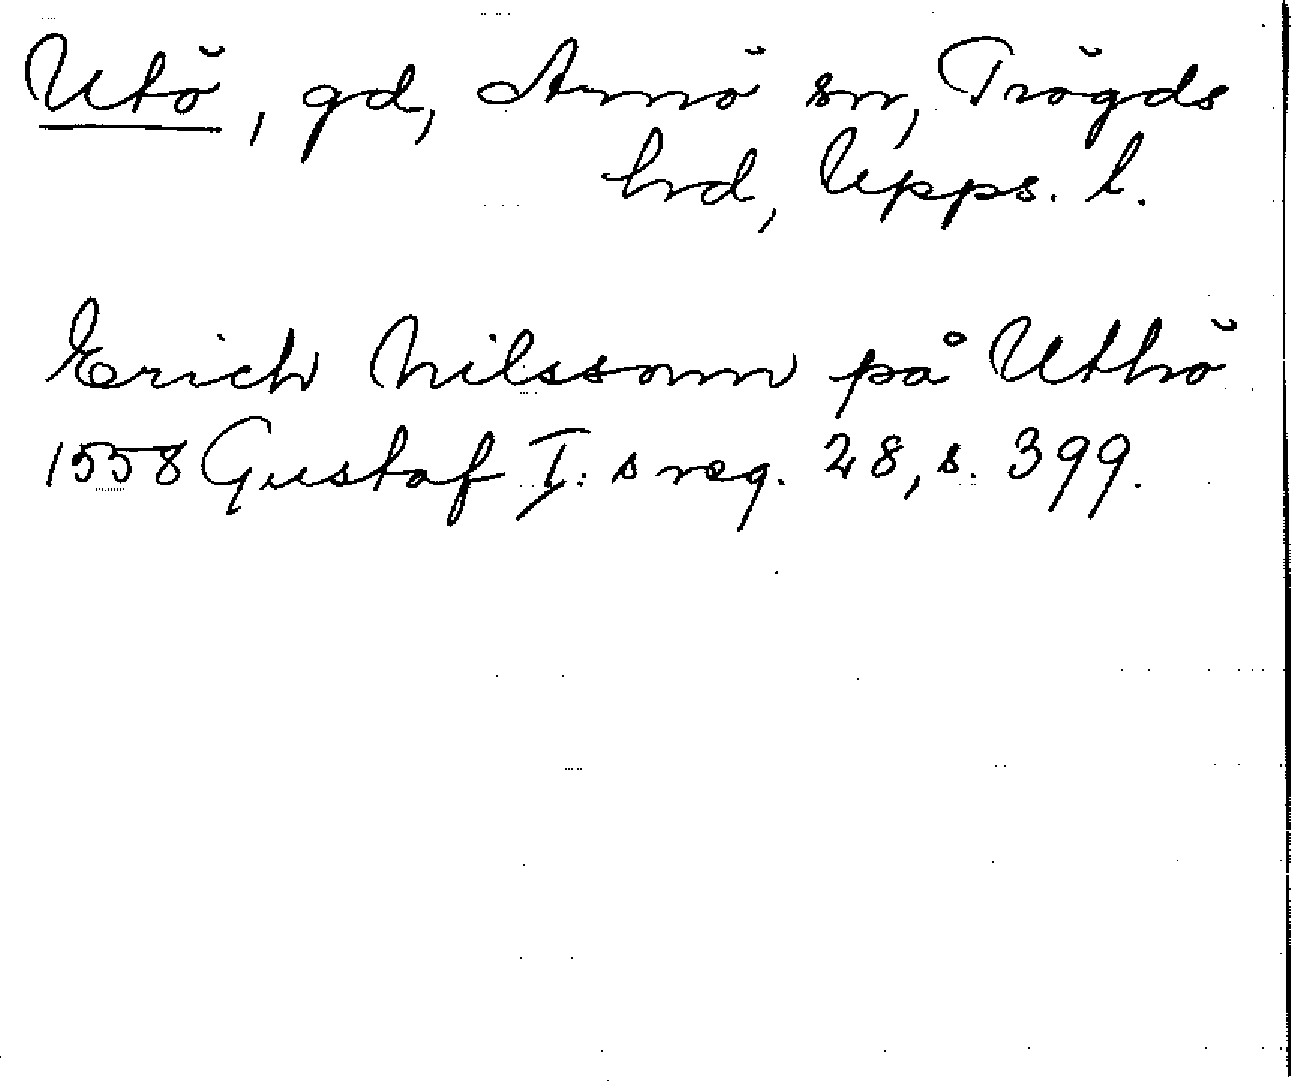 Utö, gd, Arnö sn, Trögds
hrd, Upps. l.
Erich Nilssonn på Uthö
1558 Gustaf I:s reg. 28, s. 399.